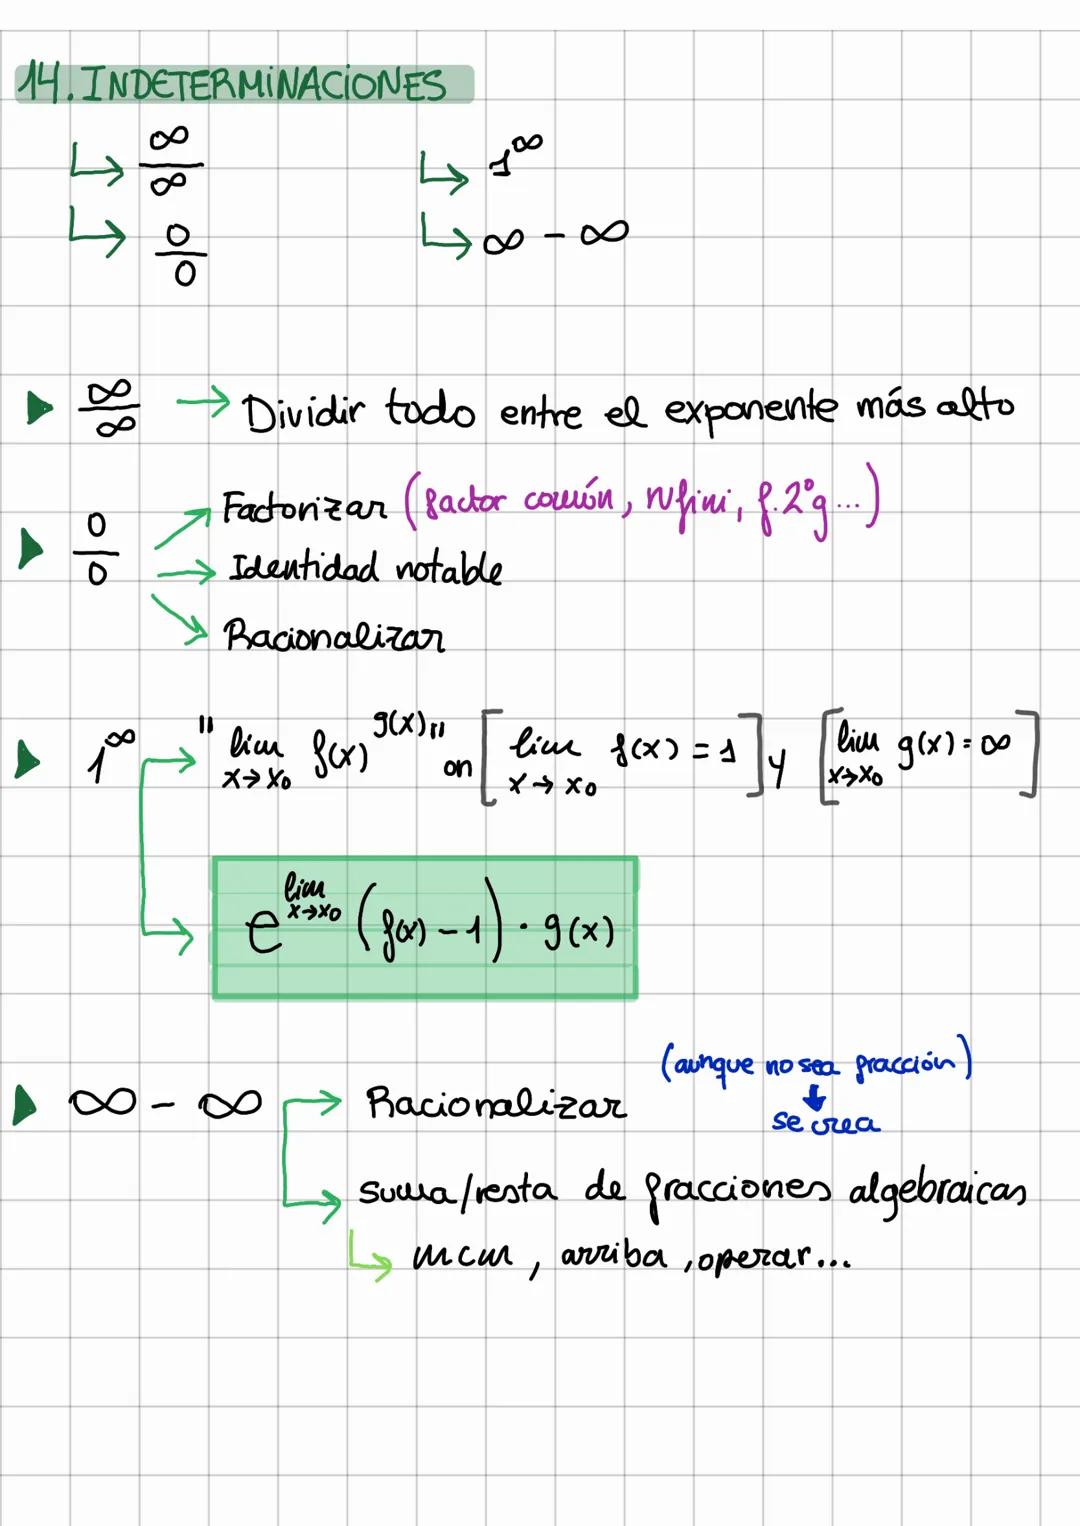 14. INDETERMINACIONES
↳ ∞/∞ ↳ 1^∞
↳ 0/0 ↳ ∞ - ∞
▶ ∞/∞ → Dividir todo entre el exponente más alto
▶ 0/0 → Factorizar (factor común, rufini, f.2ºg...)
→ Identidad notable
→ Racionalizar
▶ 1^∞ → "lim x→x₀ f(x)^g(x)" on [lim x→x₀ f(x) = 1] y [lim x→x₀ g(x) = ∞]
→ e^lim x→x₀ (f(x) - 1) · g(x)
(aunque no sea fracción)
▶ ∞ - ∞ → Racionalizar
↓
se crea
→ suma/resta de fracciones algebraicas
↳ mcm, arriba, operar...